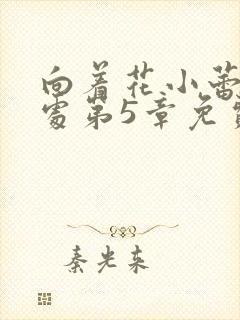 向着花小蕾
处第5章免费
秦光来